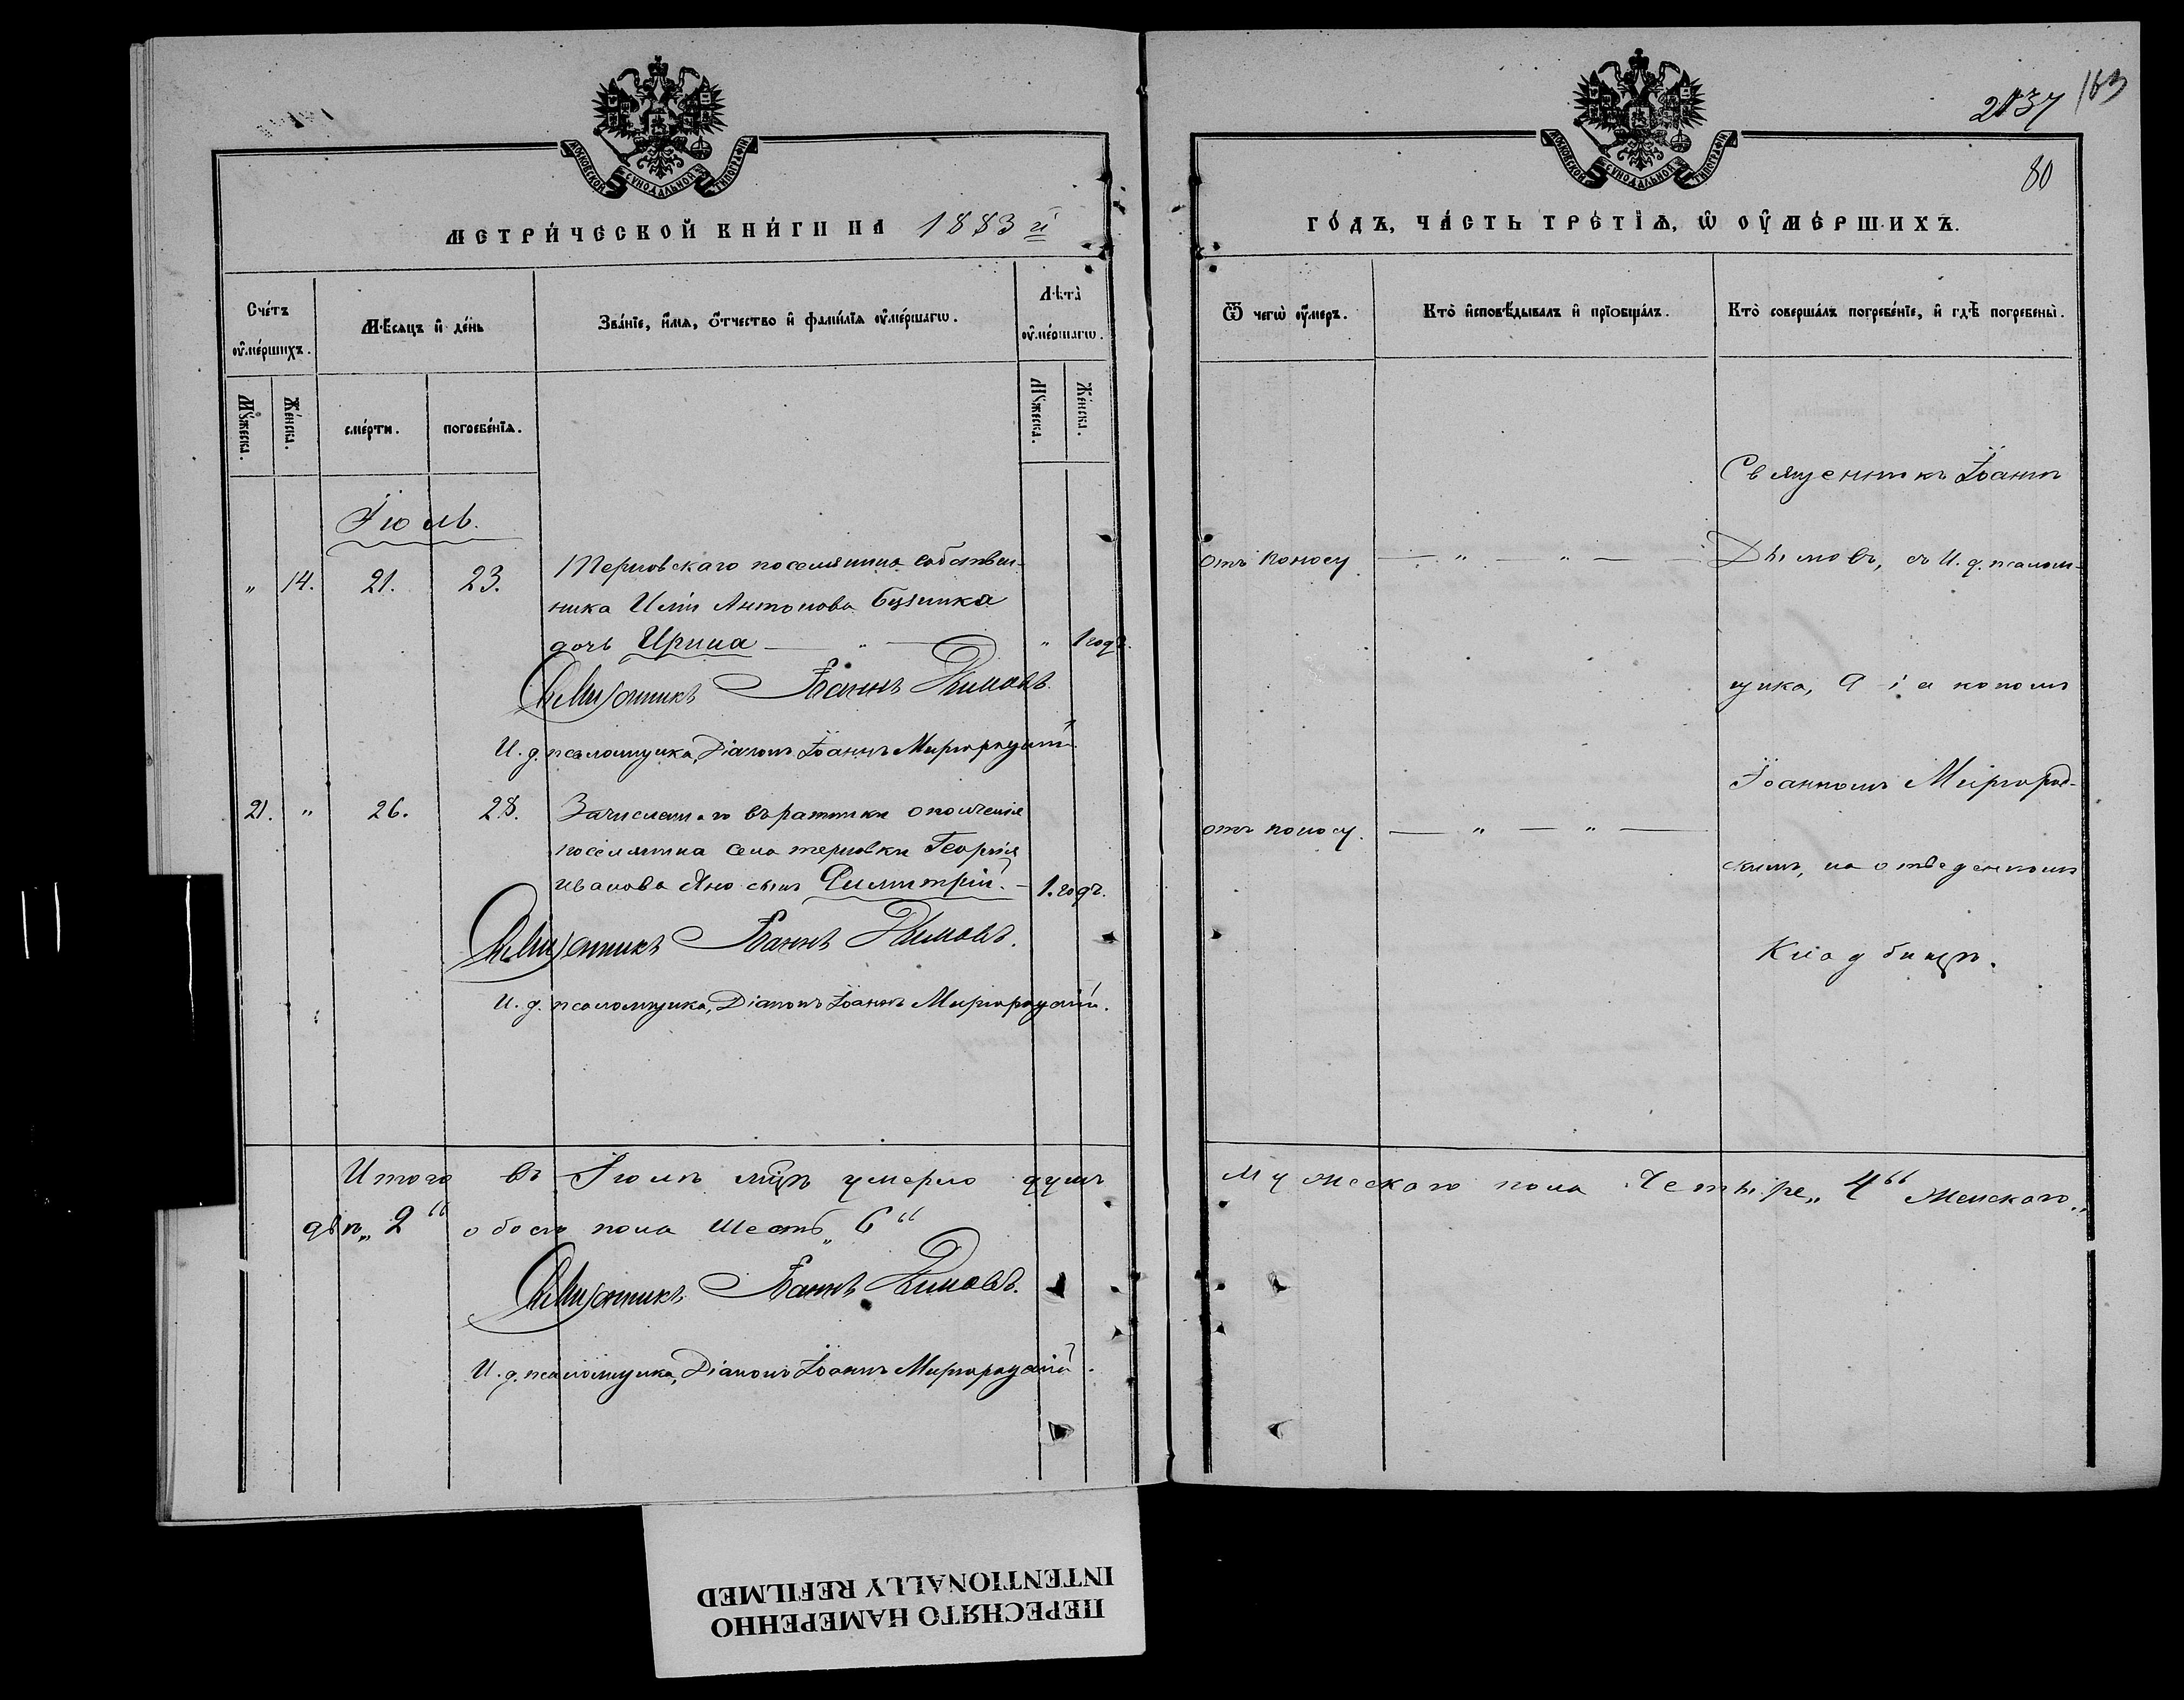 МОСКОВСКОЙ СѴНОДАЛЬНОЙ ТИПОГРАФІИ
МЕТРИ́ЧЕСКОЙ КНИ́ГИ НА 1883 й
Счéтъ ѹ҆мéршихъ.
Мѣ́сяцъ и҆ дéнь
Звáніе, и҆́мя, ѻ҆́тчество и҆ фамилія ѹ҆мéршагѡ.
Лѣтà ѹ҆мéршагѡ.
Мꙋ́жеска.
Жéнска.
смéрти.
погребéнїѧ.
Мꙋ́жеска.
Жéнска.
Іюль.
" 14. 21. 23. Терновскаго поселянина собствен-
ника Иліи Антонова Бузинка
дочь Ирина — " — " 1 годъ.
Священникъ Іоаннъ Дымовъ.
И. д. псаломщика, Діаконъ Іоаннъ Миргородскій.
21. " 26. 28. Зачисленнаго въ ратники ополченія
поселянина села терновки Георгія
иванова Яно сынъ Димитрій. — 1. годъ.
Священникъ Іоаннъ Дымовъ.
И. д. псаломщика, Діаконъ Іоаннъ Миргородскій.
Итого въ Іюлѣ мцѣ умерло душъ
двѣ „2“ обоего пола Шесть „6“
Священникъ Іоаннъ Дымовъ.
И. д. псаломщика, Діаконъ Іоаннъ Миргородскій.
2137 163
80
МОСКОВСКОЙ СѴНОДАЛЬНОЙ ТИПОГРАФІИ
ГÓДЪ, ЧÁСТЬ ТРÉТЇѦ, Ѡ ОУ҆МÉРШИХЪ.
Ѿ чегѡ̀ ѹ҆́меръ.
Ктò и҆сповѣ́дывалъ и҆ прїѻбщáлъ.
Ктò совершáлъ погребéнїе, и҆ гдѣ̀ погребены̀.
отъ поносу — " — " —
отъ поносу. — " — " —
Священникъ Іоаннъ
Дымовъ, съ И. д. псалом-
щика, Діакономъ
Іоанномъ Миргород-
скимъ, на отведенномъ
Кладбищѣ.
Мужескаго пола Четыре „4“ Женскаго „
ПЕРЕСНЯТО НАМЕРЕННО
INTENTIONALLY REFILMED